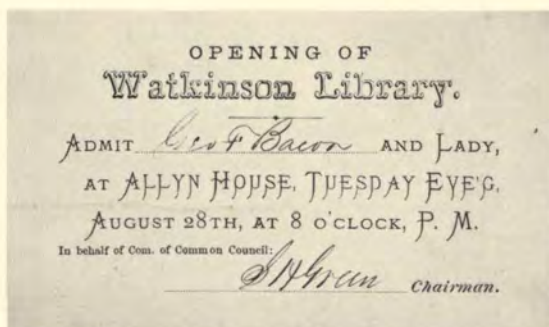 OPENING OF
Watkinson Library.
ADMIT Geo F Bacon AND LADY,
AT ALLYN HOUSE, TUESDAY EVE'G,
AUGUST 28TH, AT 8 O'CLOCK, P. M.
In behalf of Com. of Common Council:
S H Green Chairman.